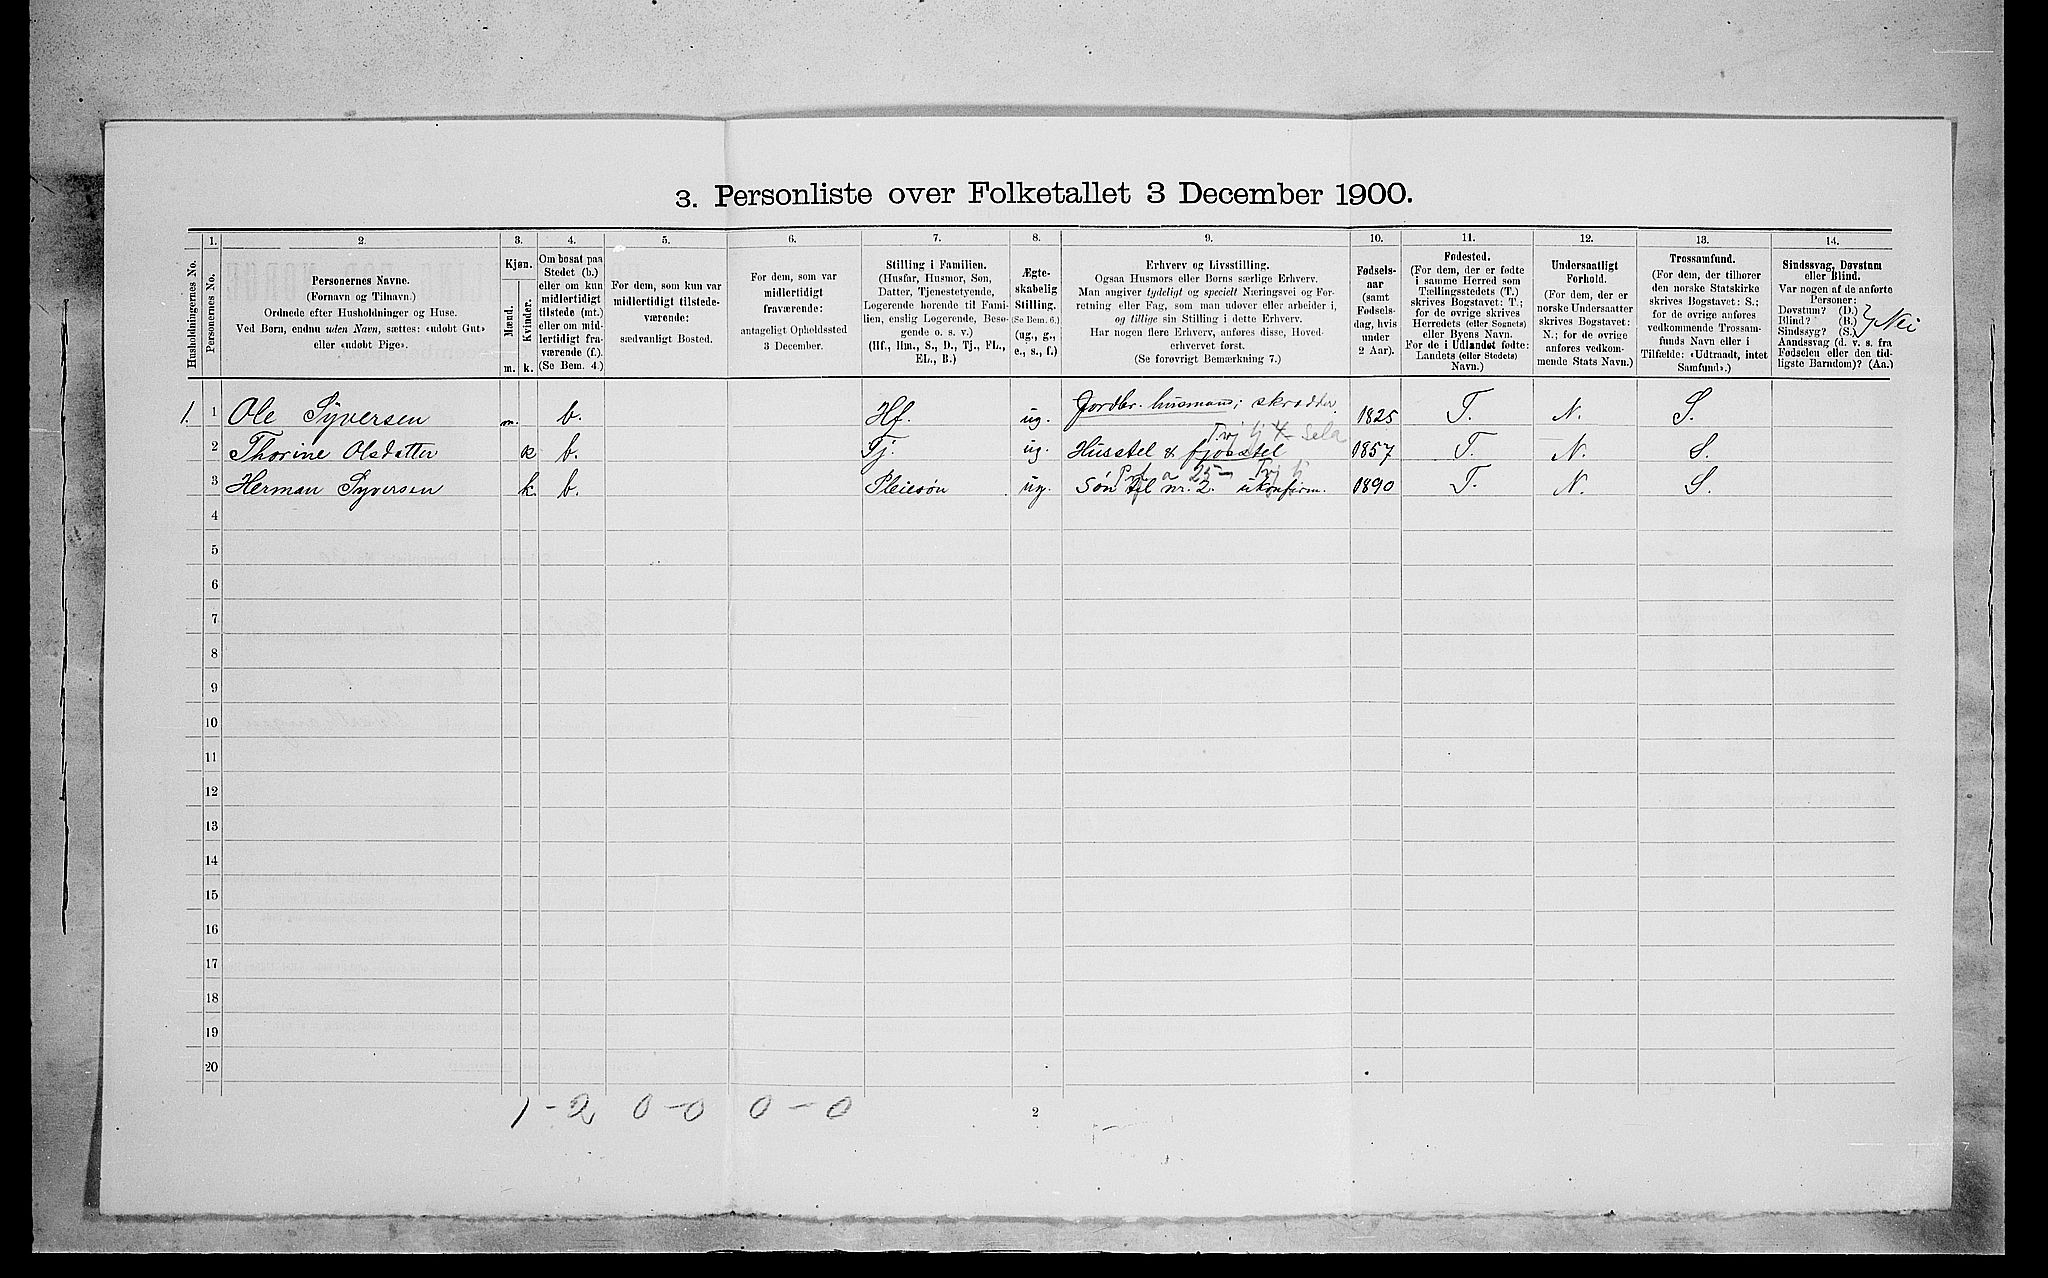 3. Personliste over Folketallet 3 December 1900.
Husholdningernes No.
1.
Personernes No.
2.
Personernes Navne.
(Fornavn og Tilnavn.)
Ordnede efter Husholdninger og Huse.
Ved Børn, endnu uden Navn, sættes: «udøbt Gut»
eller «udøbt Pige».
3.
Kjøn.
Mænd.
Kvinder.
m. k.
4.
Om bosat paa
Stedet (b.)
eller om kun
midlertidigt
tilstede (mt.)
eller om mid-
lertidigt fra-
værende (f.).
(Se Bem. 4.)
5.
For dem, som kun var
midlertidigt tilstede-
værende:
sædvanligt Bosted.
6.
For dem, som var
midlertidigt
fraværende:
antageligt Opholdssted
3 December.
7.
Stilling i Familien.
(Husfar, Husmor, Søn,
Datter, Tjenestetyende,
Logerende hørende til Fami-
lien, enslig Logerende, Besø-
gende o. s. v.)
(Hf., Hm., S., D., Tj., FL.,
EL., B.)
8.
Ægte-
skabelig
Stilling.
(Se Bem. 6.)
(ug., g.,
e., s., f.)
9.
Erhverv og Livsstilling.
Ogsaa Husmors eller Børns særlige Erhverv.
Man angiver tydeligt og specielt Næringsvei og For-
retning eller Fag, som man udøver eller arbeider i,
og tillige sin Stilling i dette Erhverv.
Har nogen flere Erhverv, anføres disse, Hoved-
erhvervet først.
(Se forøvrigt Bemærkning 7.)
10.
Fødsels-
aar
(samt
Fødsels-
dag, hvis
under
2 Aar).
11.
Fødested.
(For dem, der er fødte
i samme Herred som
Tællingsstedets (T.)
skrives Bogstavet: T.;
for de øvrige skrives
Herredets (eller Sognets)
eller Byens Navn.
For de i Udlandet fødte:
Landets (eller Stedets)
Navn.)
12.
Undersaatligt
Forhold.
(For dem, der er
norske Undersaatter
skrives Bogstavet:
N.; for de øvrige
anføres vedkom-
mende Stats Navn.)
13.
Trossamfund.
(For dem, der tilhører
den norske Statskirke
skrives Bogstavet: S.;
for de øvrige anføres
vedkommende Trossam-
funds Navn eller i
Tilfælde: «Udtraadt, intet
Samfund».)
14.
Sindssvag, Døvstum
eller Blind.
Var nogen af de anførte
Personer:
Døvstum? (D.)
Blind? (B.)
Sindssyg? (S.)
Nei
Aandssvag (d. v. s. fra
Fødselen eller den tid-
ligste Barndom)? (Aa.)
1. 1 Ole Syversen m. b. Hf. ug. Jordbr. husmand; skrædder 1825 T. N. S.
2 Thorine Olsdatter k b. Tj. ug. Husstel & fjøsstel 1857 T. N. S.
3 Herman Syversen k. b. Pleiesøn ug. Søn til nr. 2. ukonfirm. 1890 T. N. S.
4
5
6
7
8
9
10
11
12
13
14
15
16
17
18
19
20
1 - 2 0 - 0 0 - 0
2